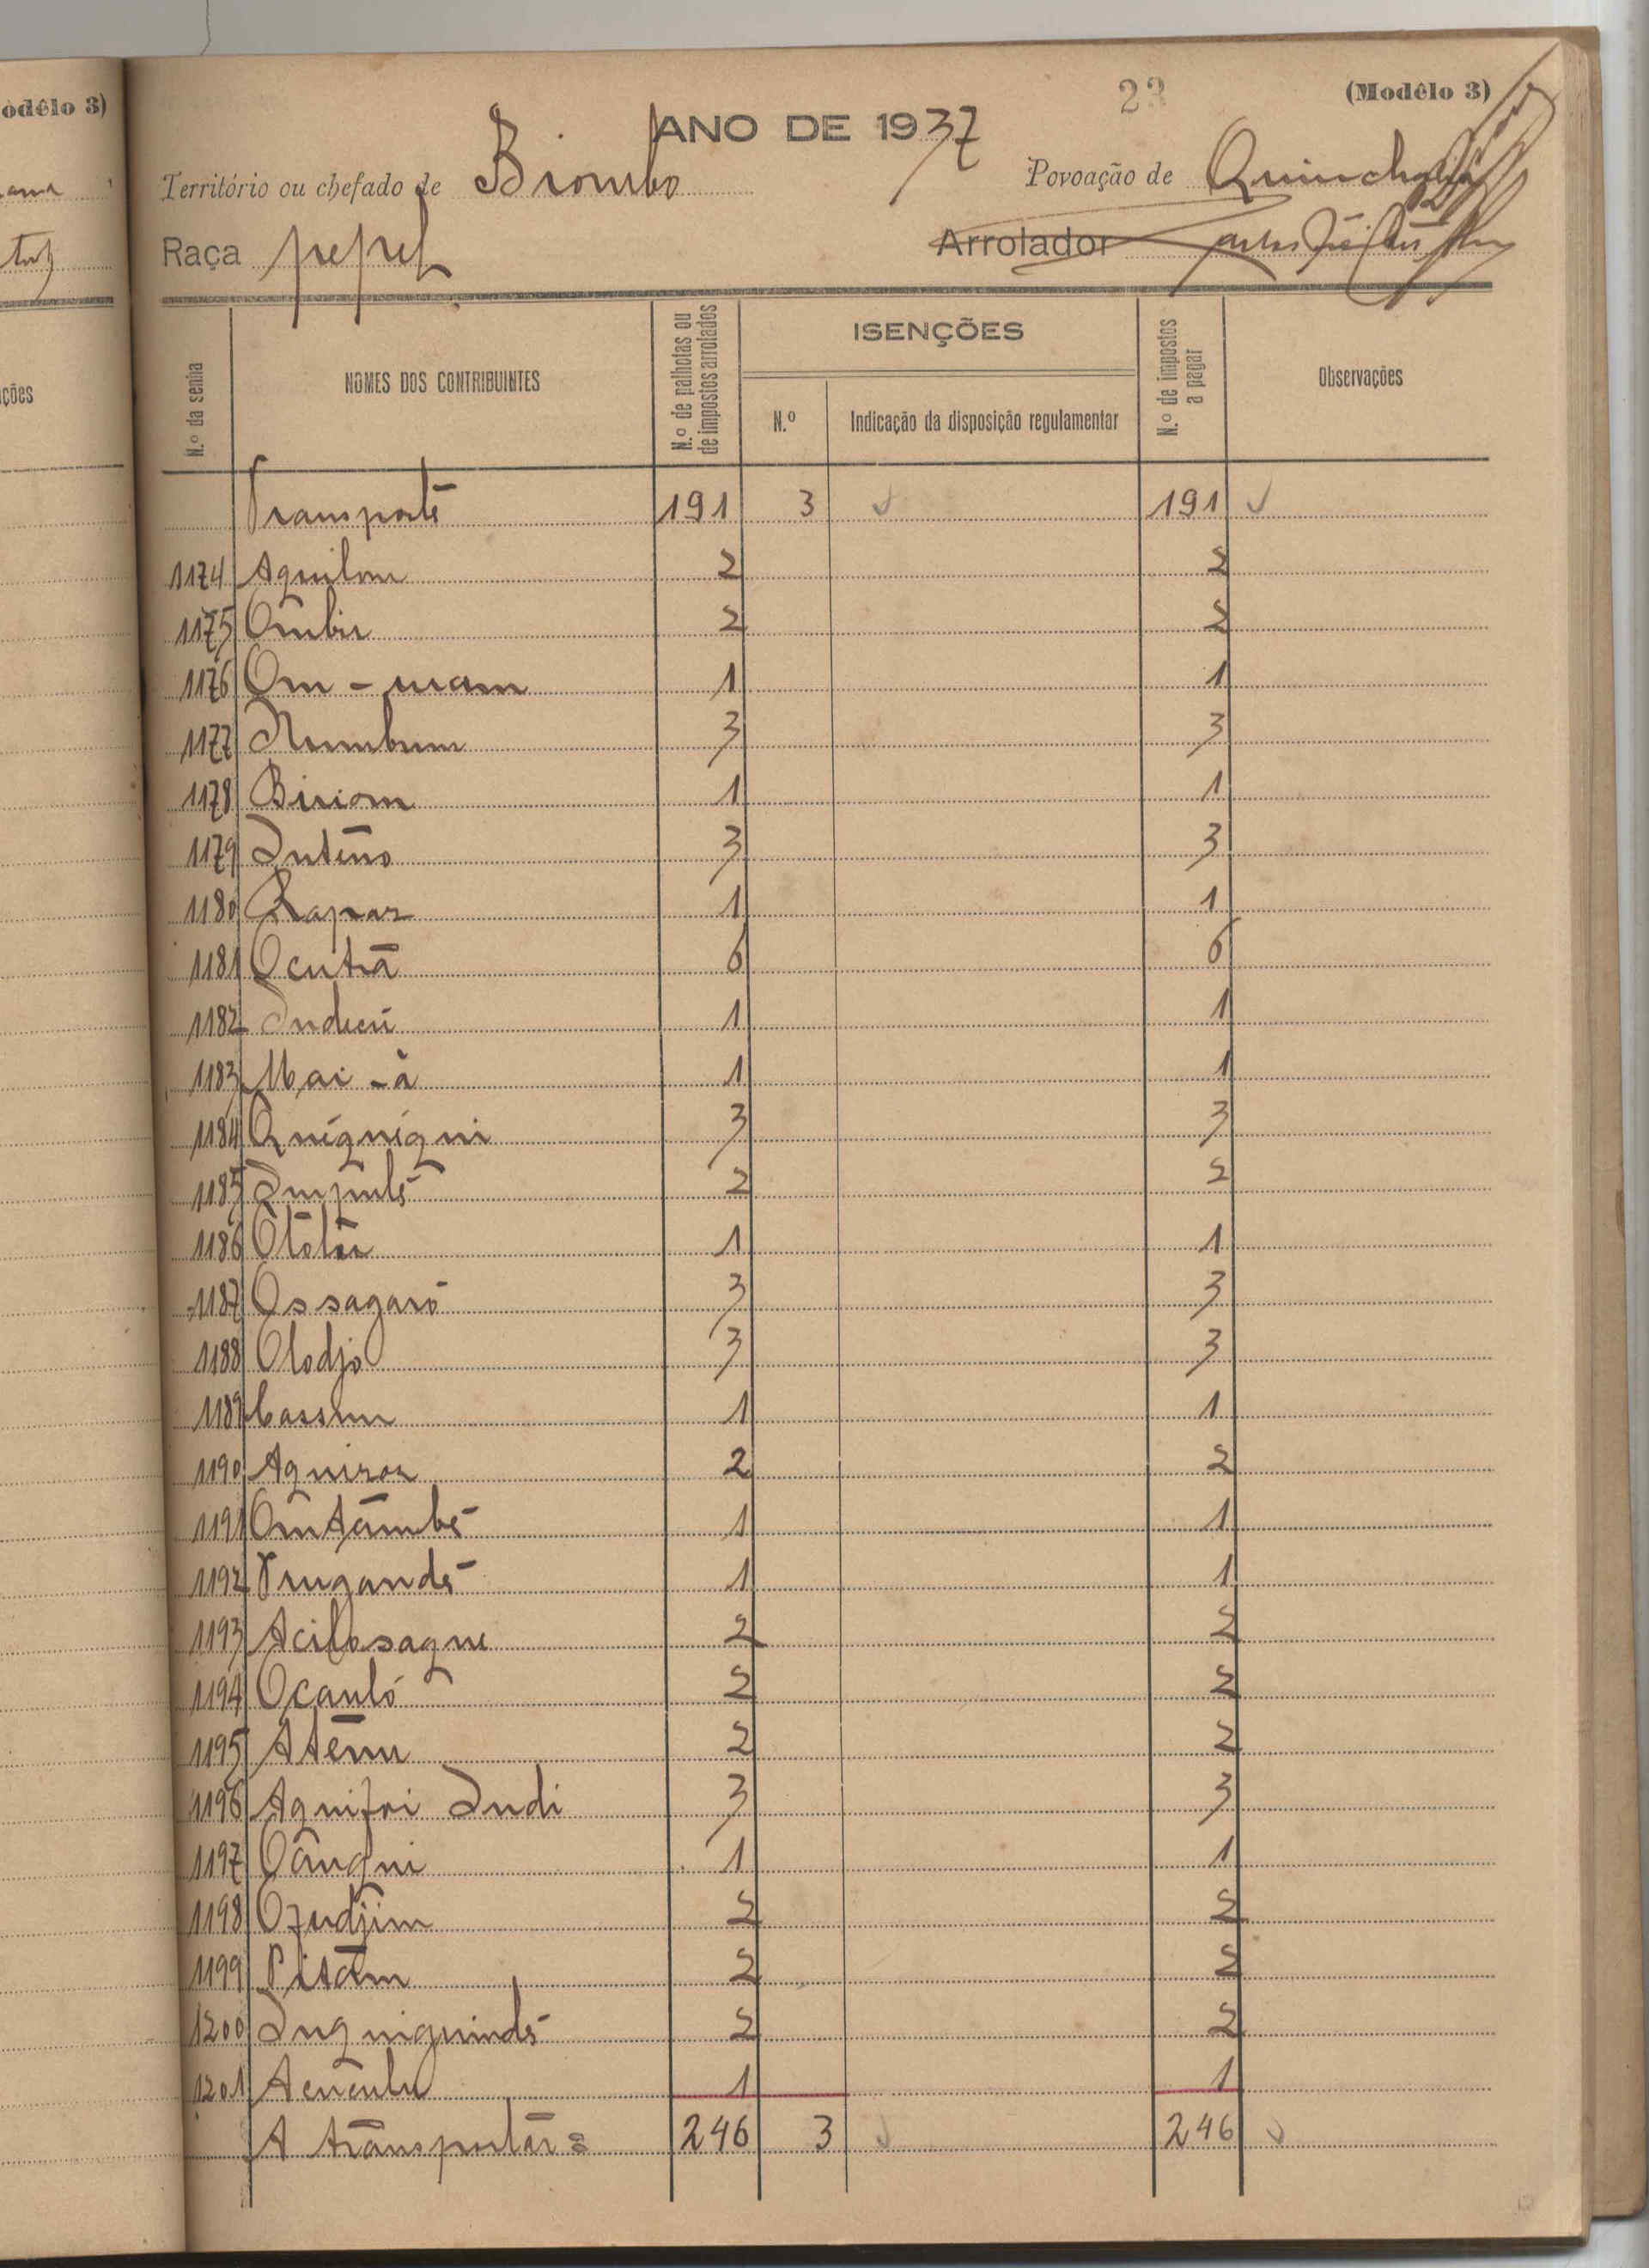 odêlo 3)
ções
23
(Modêlo 3)
ANO DE 1937
Território ou chefado de Biombo
Povoação de
Raça pepel
Arrolador
N.º da senha
NOMES DOS CONTRIBUINTES
N.º de palhotas ou de impostos arrolados
ISENÇÕES
N.º
Indicação da disposição regulamentar
N.º de impostos a pagar
Observações
Transporte 191 3 ✓ 191 ✓
1174 Aquilom 2 2
1175 Ombir 2 2
1176 Om - uram 1 1
1177 Numbum 3 3
1178 Biriom 1 1
1179 Intêno 3 3
1180 Rapaz 1 1
1181 Ocutrā 6 6
1182 Indicú 1 1
1183 Mai - à 1 1
1184 Quiquiqui 3 3
1185 Impulé 2 2
1186 1 1
1187 Ossagaró 3 3
1188 Olodjo 3 3
1189 Cassum 1 1
1190 Aquiroz 2 2
1191 Omtambé 1 1
1192 Prugandé 1 1
1193 Acilosaque 2 2
1194 Ocauló 2 2
1195 Atēnu 2 2
1196 Aquifoi Indi 3 3
1197 Oânqui 1 1
1198 Ozudjim 2 2
1199 Pitām 2 2
1200 Inquiquindé 2 2
1201 1 1
A transportar = 246 3 ✓ 246 ✓